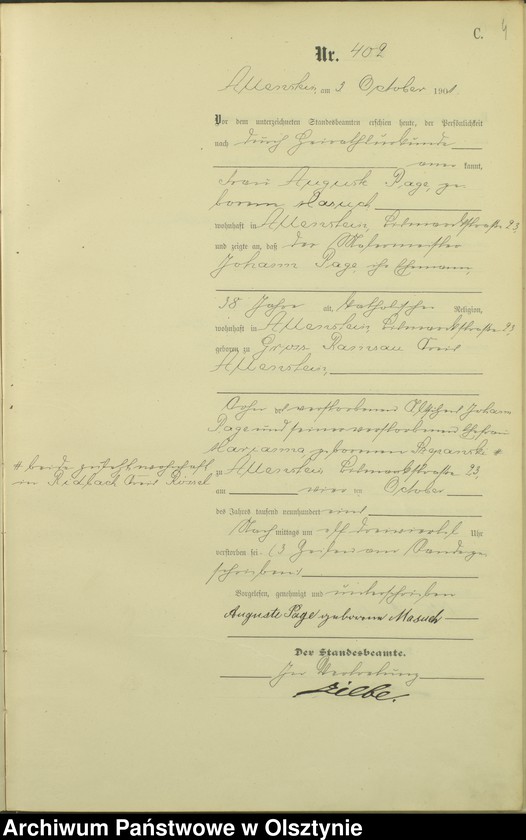 C. 4
Nr. 402
Allenstein, am 3 October 1901.
Vor dem unterzeichneten Standesbeamten erschien heute, der Persönlichkeit
nach durch Heirathsurkunde
aner kannt,
Frau Auguste Page, ge
borene Masuch
wohnhaft in Allenstein, 23,
und zeigte an, daß der Malermeister
Johann Page, ihr Ehemann,
38 Jahre alt, katholischer Religion,
wohnhaft in Allenstein, 23
geboren zu Gross Ramsau Kreis
Allenstein,
Sohn des verstorbenen Johann
Page und seiner verstorbenen Ehefrau
Marianna, geborenen #
# beide zuletzt wohnhaft
in Ridbach Kreis Rössel
zu Allenstein 23,
am ten October
des Jahres tausend neunhundert eins
Nach mittags um elf dreiviertel Uhr
verstorben sei. (3 Zeilen am Rande ge
schrieben)
Vorgelesen, genehmigt und unterschrieben
Auguste Page geborene Masuch
Der Standesbeamte.
In Vertretung
Archiwum Państwowe w Olsztynie